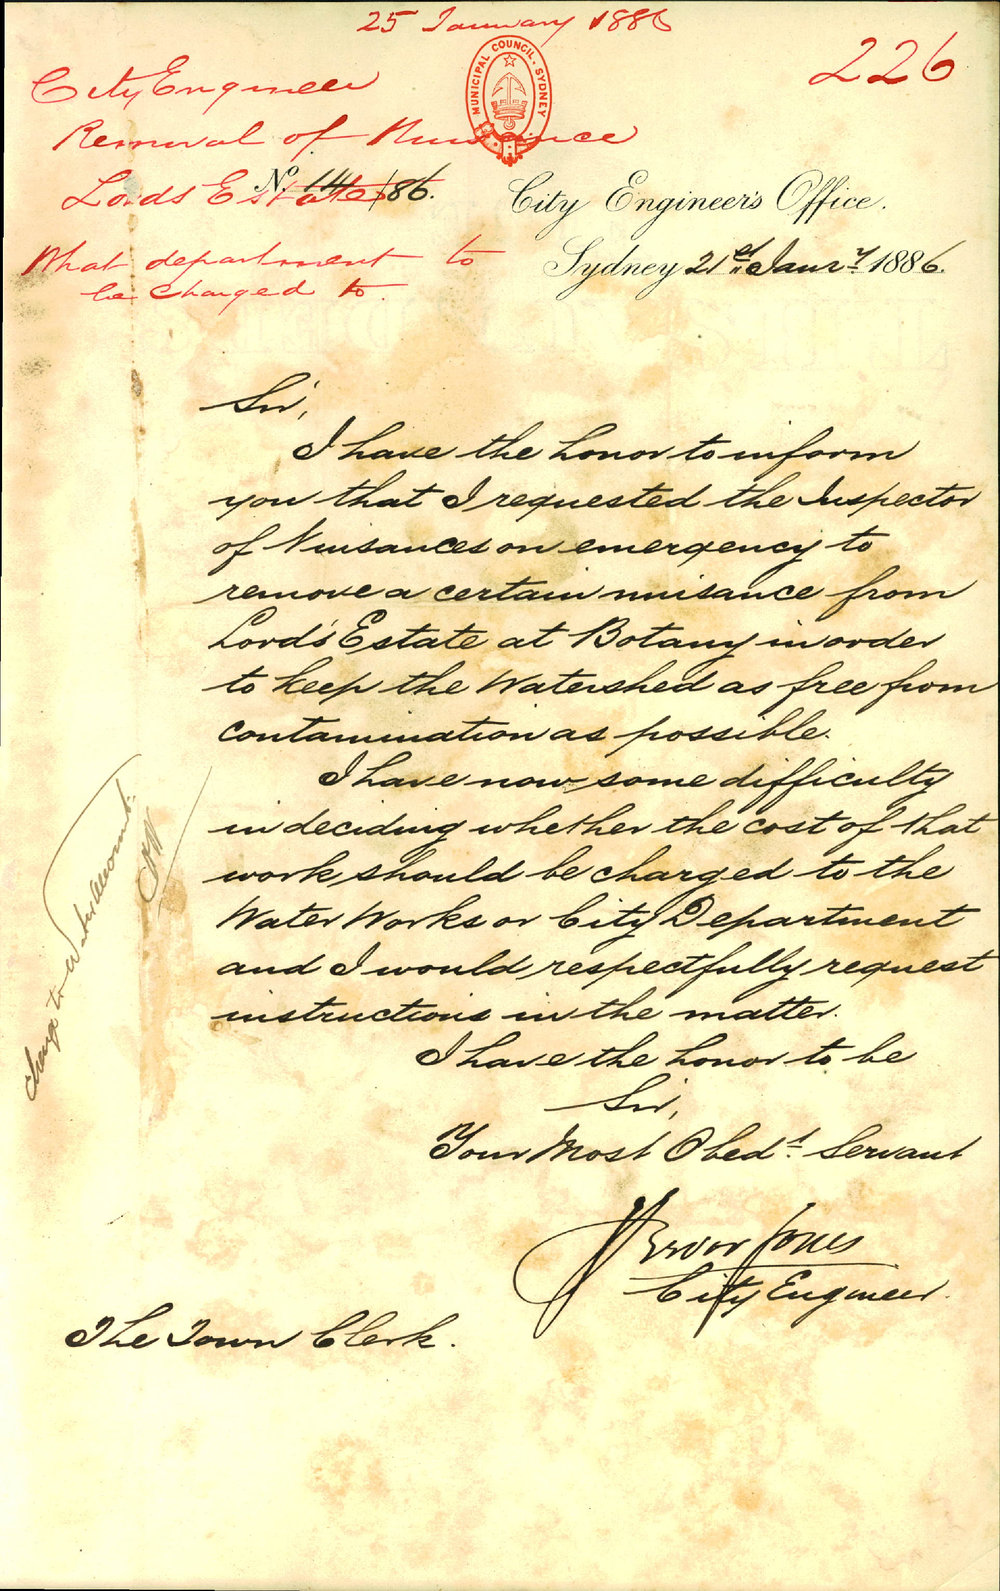 25 January 1886
226
MUNICIPAL COUNCIL. SYDNEY
City Engineer
Removal of Nuisance
Lords Estate
No. 141/86.
City Engineer's Office.
What department to
be charged to.
Sydney 21st Janry 1886.
Sir,
I have the honor to inform
you that I requested the Inspector
of Nuisances on emergency to
remove a certain nuisance from
Lord's Estate at Botany in order
to keep the Watershed as free from
contamination as possible.
I have now some difficulty
in deciding whether the cost of that
work should be charged to the
Water Works or City Department
and I would respectfully request
instructions in the matter.
I have the honor to be
Sir,
Your Most Obedt. Servant
Trevor Jones
City Engineer.
The Town Clerk.
charge to